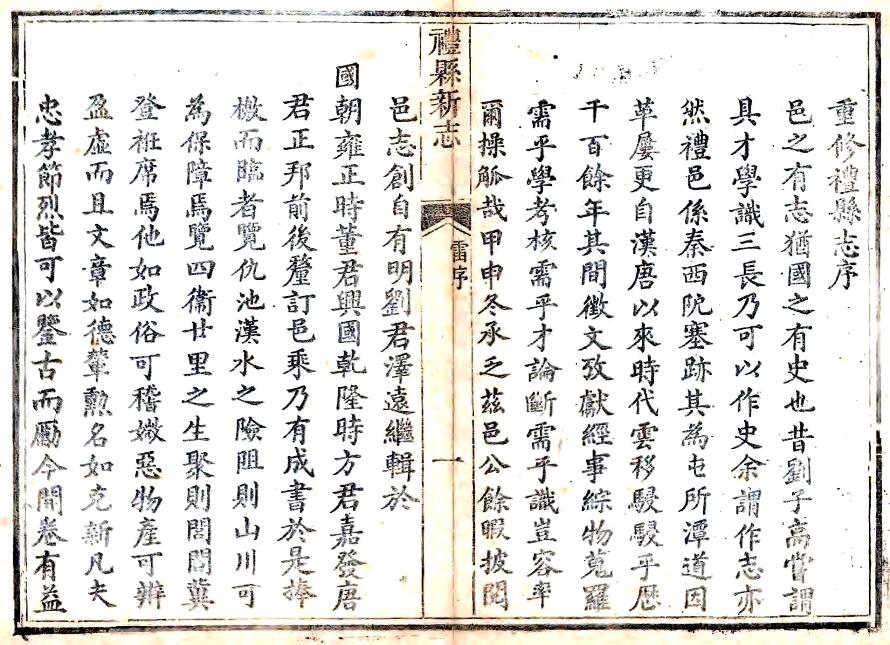 重修禮縣志序
邑之有志猶國之有史也昔劉子髙嘗謂
具才學識三長乃可以作史余謂作志亦
然禮邑係秦西阨塞跡其為屯所潭道因
革屢更自漢唐以來時代雲移駸駸乎歴
千百餘年其間徵文攷獻經事綜物蒐羅
需乎學考核需乎才論斷需乎識豈容率
爾操觚哉甲申冬承乏茲邑公餘暇披閱
禮縣新志
雷序
一
邑志創自有明劉君澤遠繼輯於
國朝雍正時董君興國乾隆時方君嘉發唐
君正邦前後釐訂邑乘乃有成書於是捧
檄而臨者覽仇池漢水之險阻則山川可
為保障焉覽四衞廿里之生聚則閭閻冀
登袵席焉他如政俗可稽媺惡物產可辨
盈虛而且文章如德輦勲名如克新凡夫
忠孝節烈皆可以鑒古而勵今開卷有益